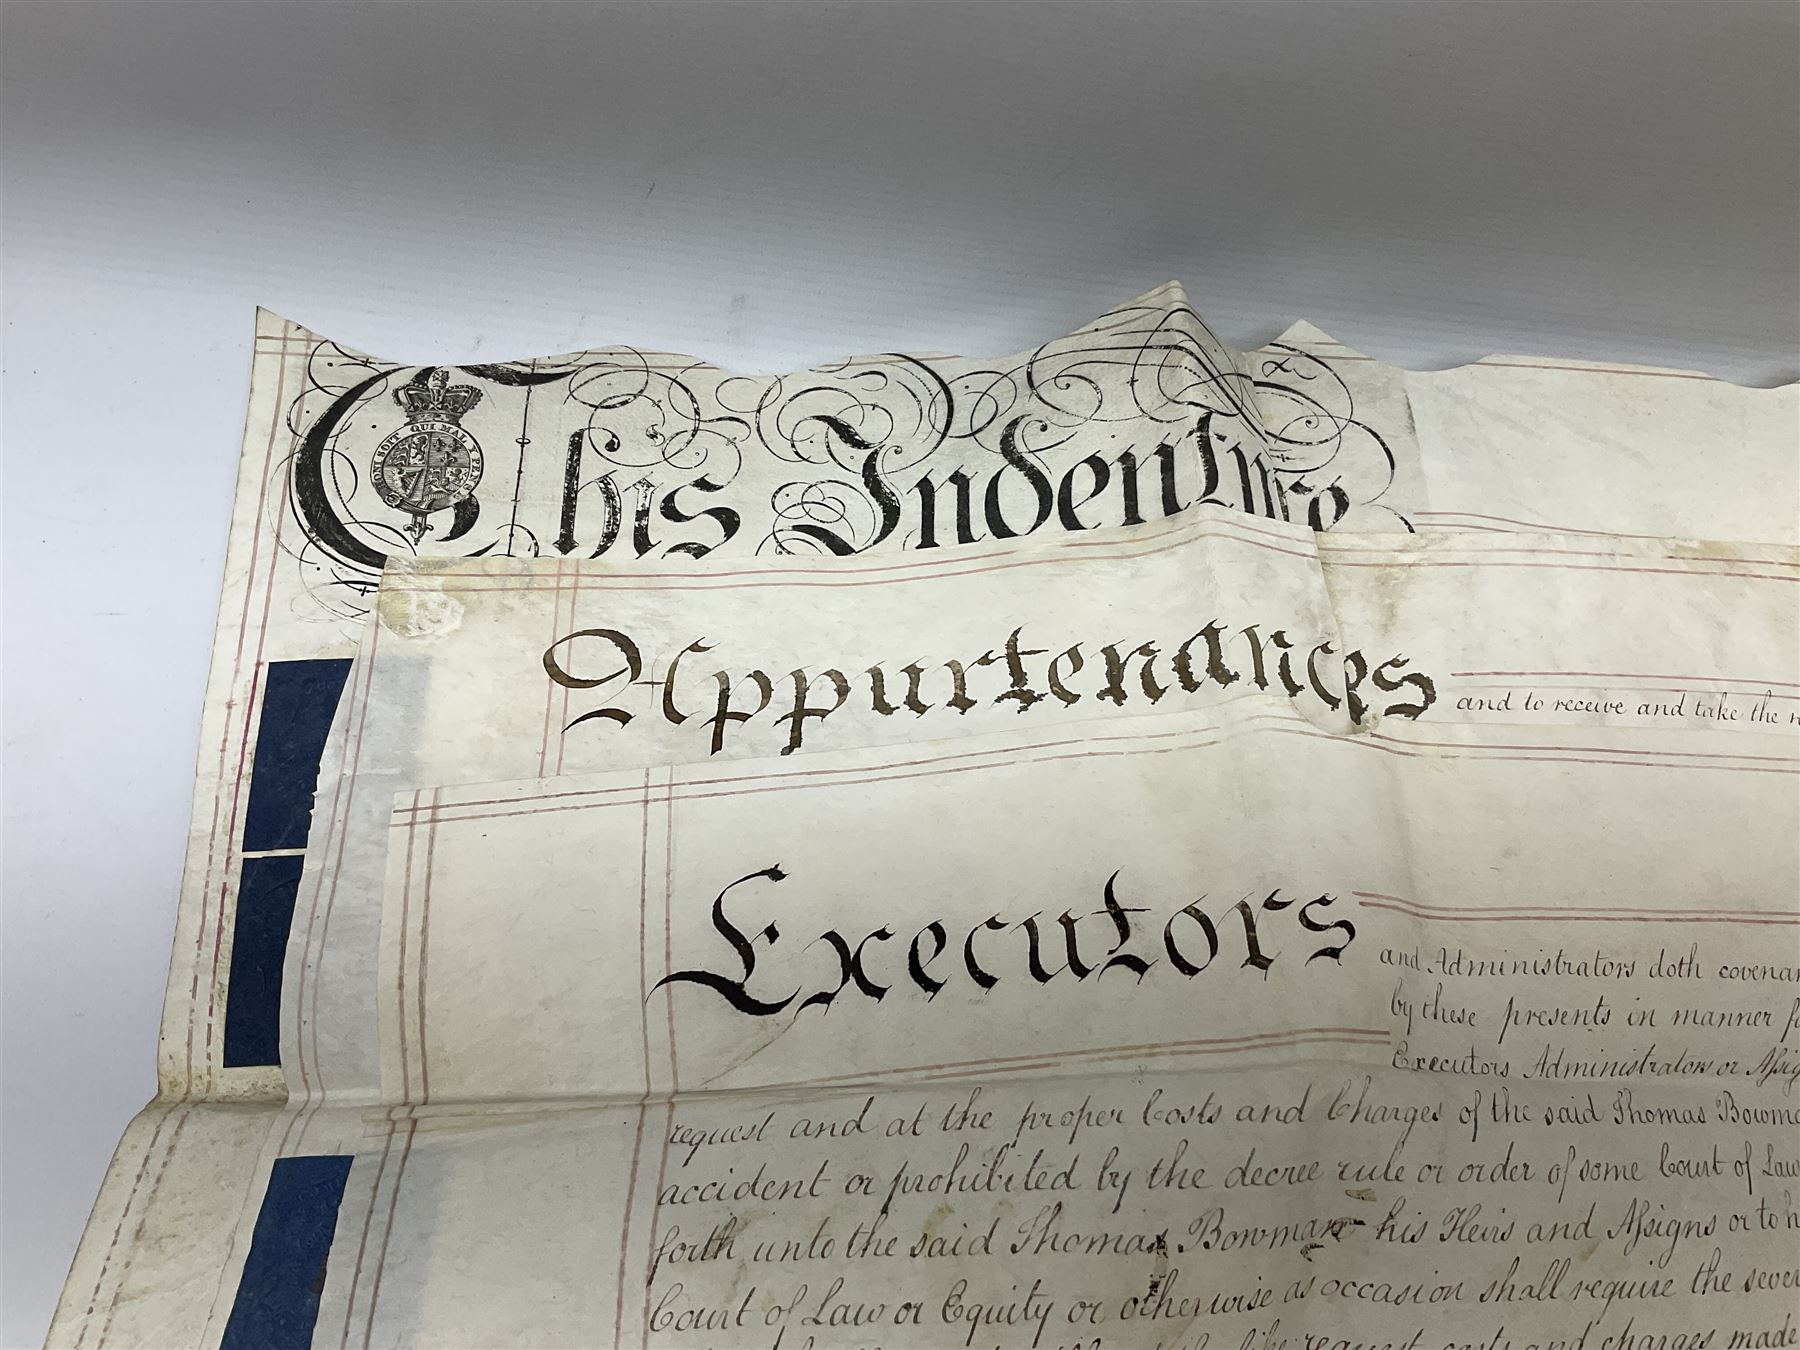 HONI SOIT QUI MAL Y PENSE
This Indenture
Appurtenances and to receive and take the
Executors
and Administrators doth covenan
by these presents in manner fo
Executors Administrators or Assig
request and at the proper Costs and Charges of the said Thomas Bowma
accident or prohibited by the decree rule or order of some Court of Law
forth unto the said Thomas Bowman his Heirs and Assigns or to h
Court of Law or Equity or otherwise as occasion shall require the sever
like request costs and charges made